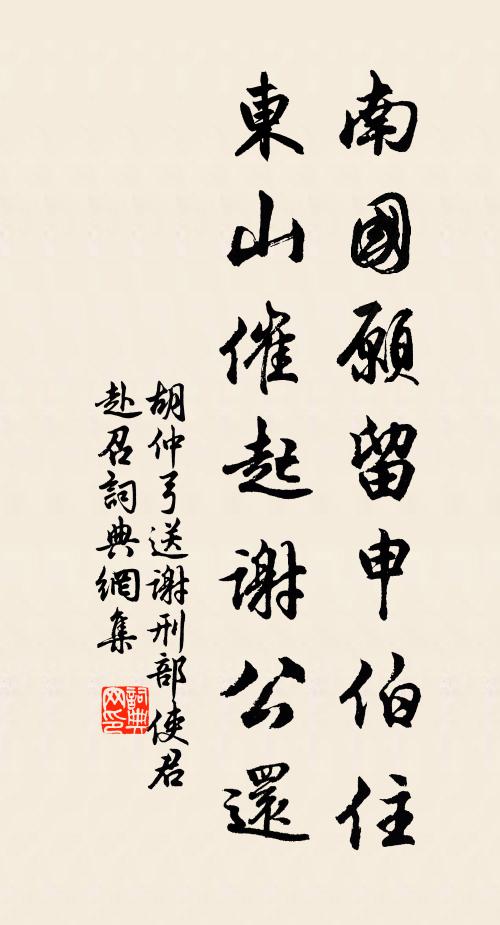 南國願留申伯住
東山催起謝公還
胡仲弓送謝刑部使君
赴召詞典網集
詞典網印